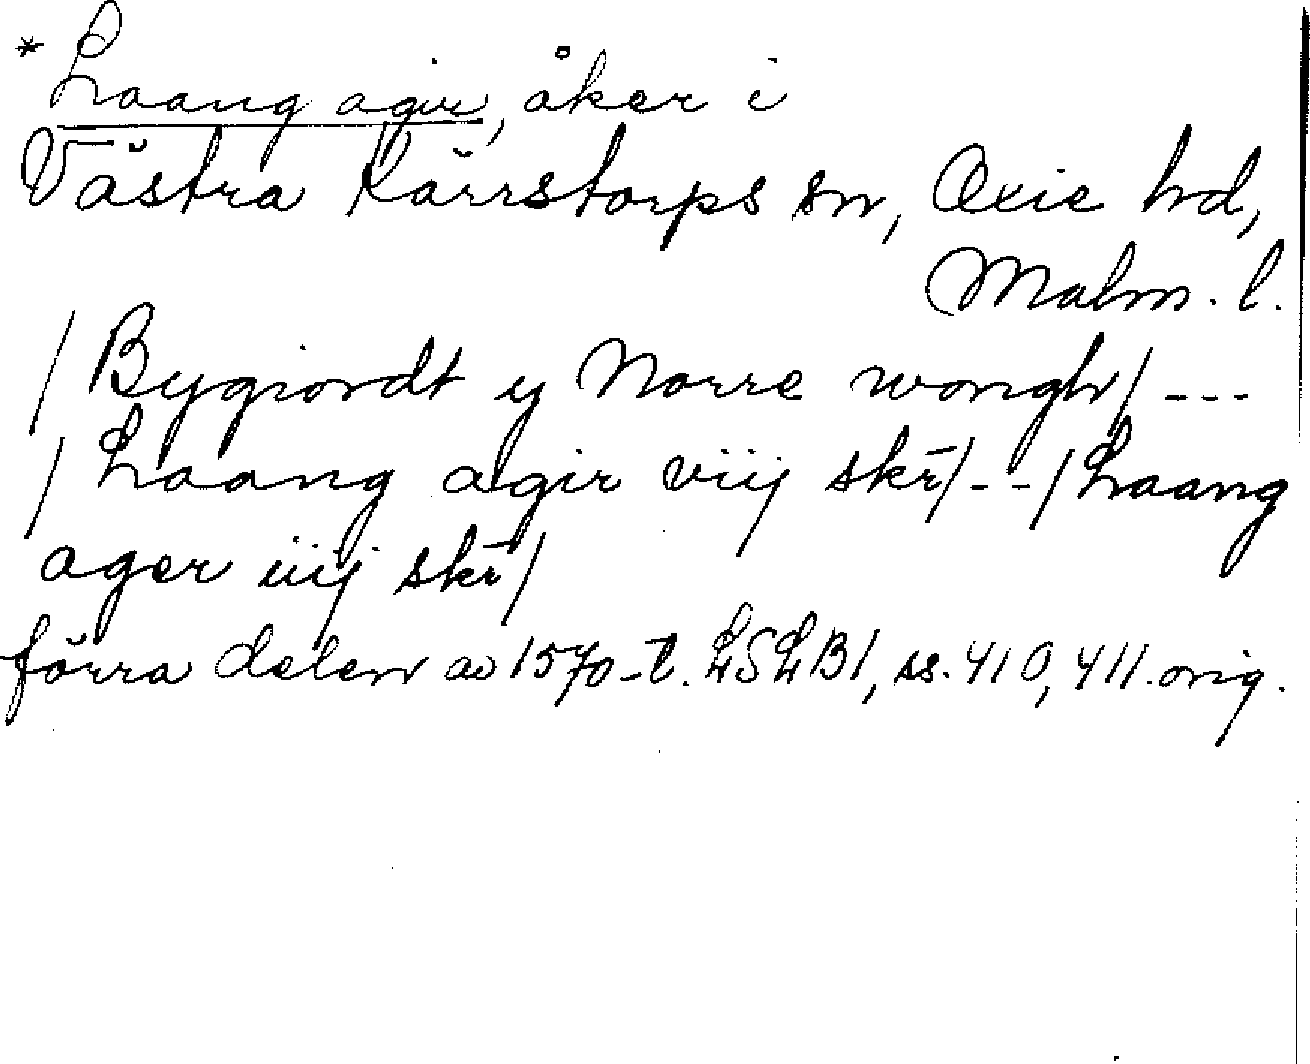 * Laang agir, åker i
Västra Kärrstorps sn, Oxie hd,
Malm. l.
/ Bygiordt y Norre wongh / ---
/ Laang agir viij skr̄ / -- / Laang
ager iiij skr̄ /
förra delen av 1570-t. LSLB1, ss. 410, 411 orig.